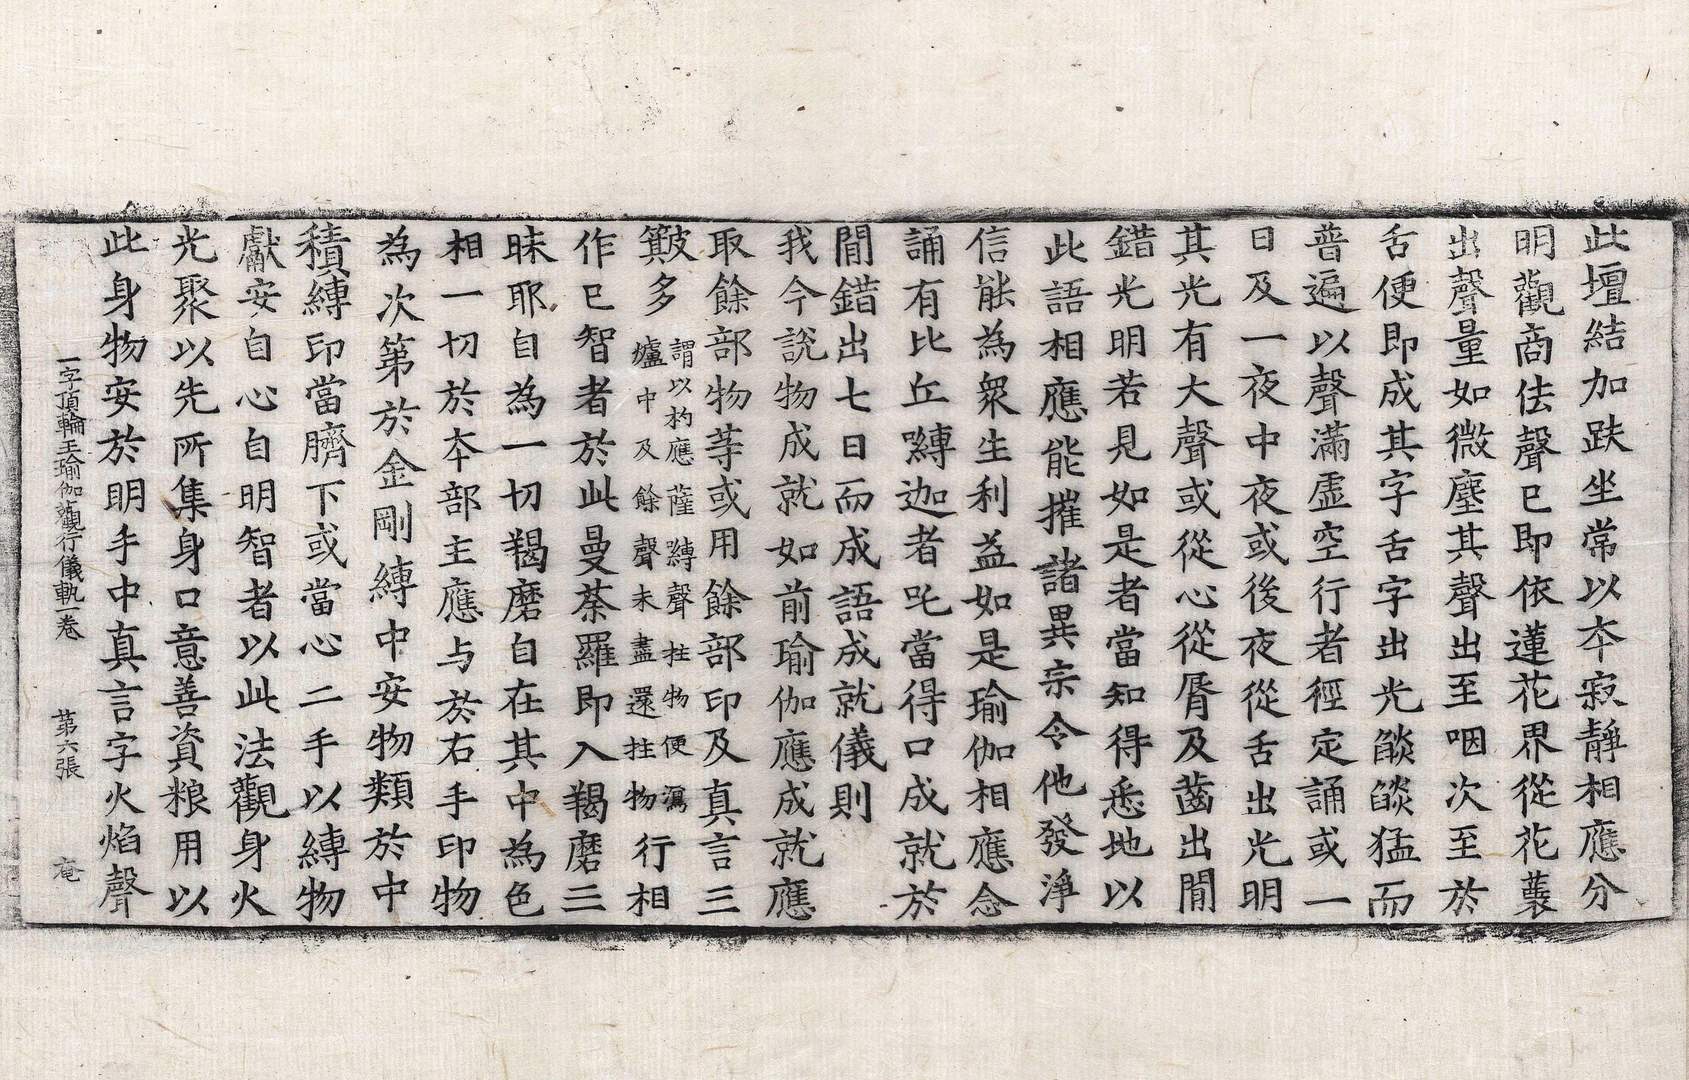 此壇結加趺坐常以夲寂靜相應分
明觀商佉聲已即依蓮花界從花蘂
出聲量如微塵其聲出至咽次至於
舌便即成其字舌字出光燄燄猛而
普遍以聲滿虛空行者經定誦或一
日及一夜中夜或後夜從舌出光明
其光有大聲或從心從脣及齒出閒
錯光明若見如是者當知得悉地以
此語相應能摧諸異宗令他發淨
信能為衆生利益如是瑜伽相應念
誦有比丘嚩迦者吒當得口成就於
閒錯出七日而成語成就儀則
我今說物成就如前瑜伽應成就應
取餘部物䓁或用餘部印及真言三
簸多謂以杓應薩嚩聲拄物便瀉
爐中及餘聲未盡還拄物行相
作已智者於此曼荼羅即入羯磨三
昧耶自為一切羯磨自在其中為色
相一切於夲部主應与於右手印物
為次第於金剛縛中安物類於中
積縛印當臍下或當心二手以縛物
獻安自心自明智者以此法觀身火
光聚以先所集身口意善資粮用以
此身物安於明手中真言字火焰聲
一字頂輪王瑜伽觀行儀軌一卷 第六張 奄